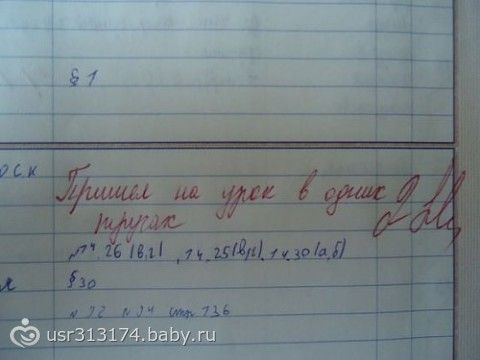 § 1
оск
Пришел на урок в одних
трусах
№ 14.26(в,г), 14.25(в,г), 14.30(а,б)
я
§ 30
№ 92 № 94 стр 136
usr313174.baby.ru